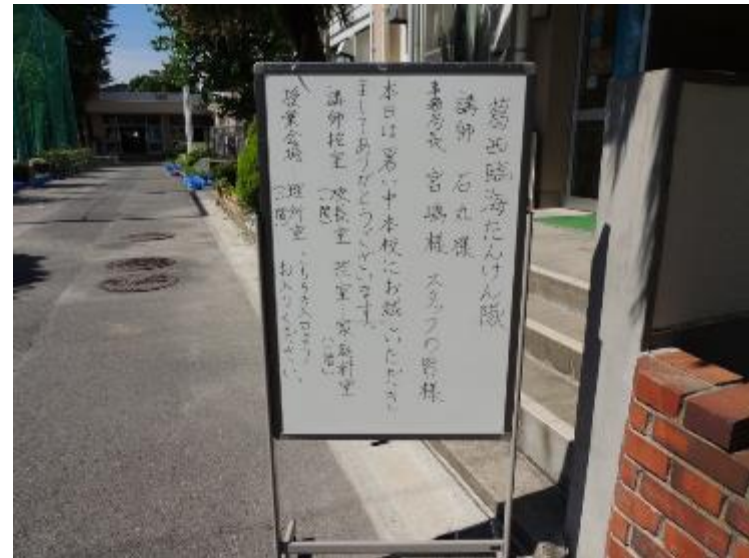 葛西臨海たんけん隊
講師 石丸様
事務局長 宮嶋様 スタッフの皆様
本日は暑い中本校にお越しいただき
ましてありがとうございます。
講師控室 校長室
(2階)
授業会場 理科室
お入りください。